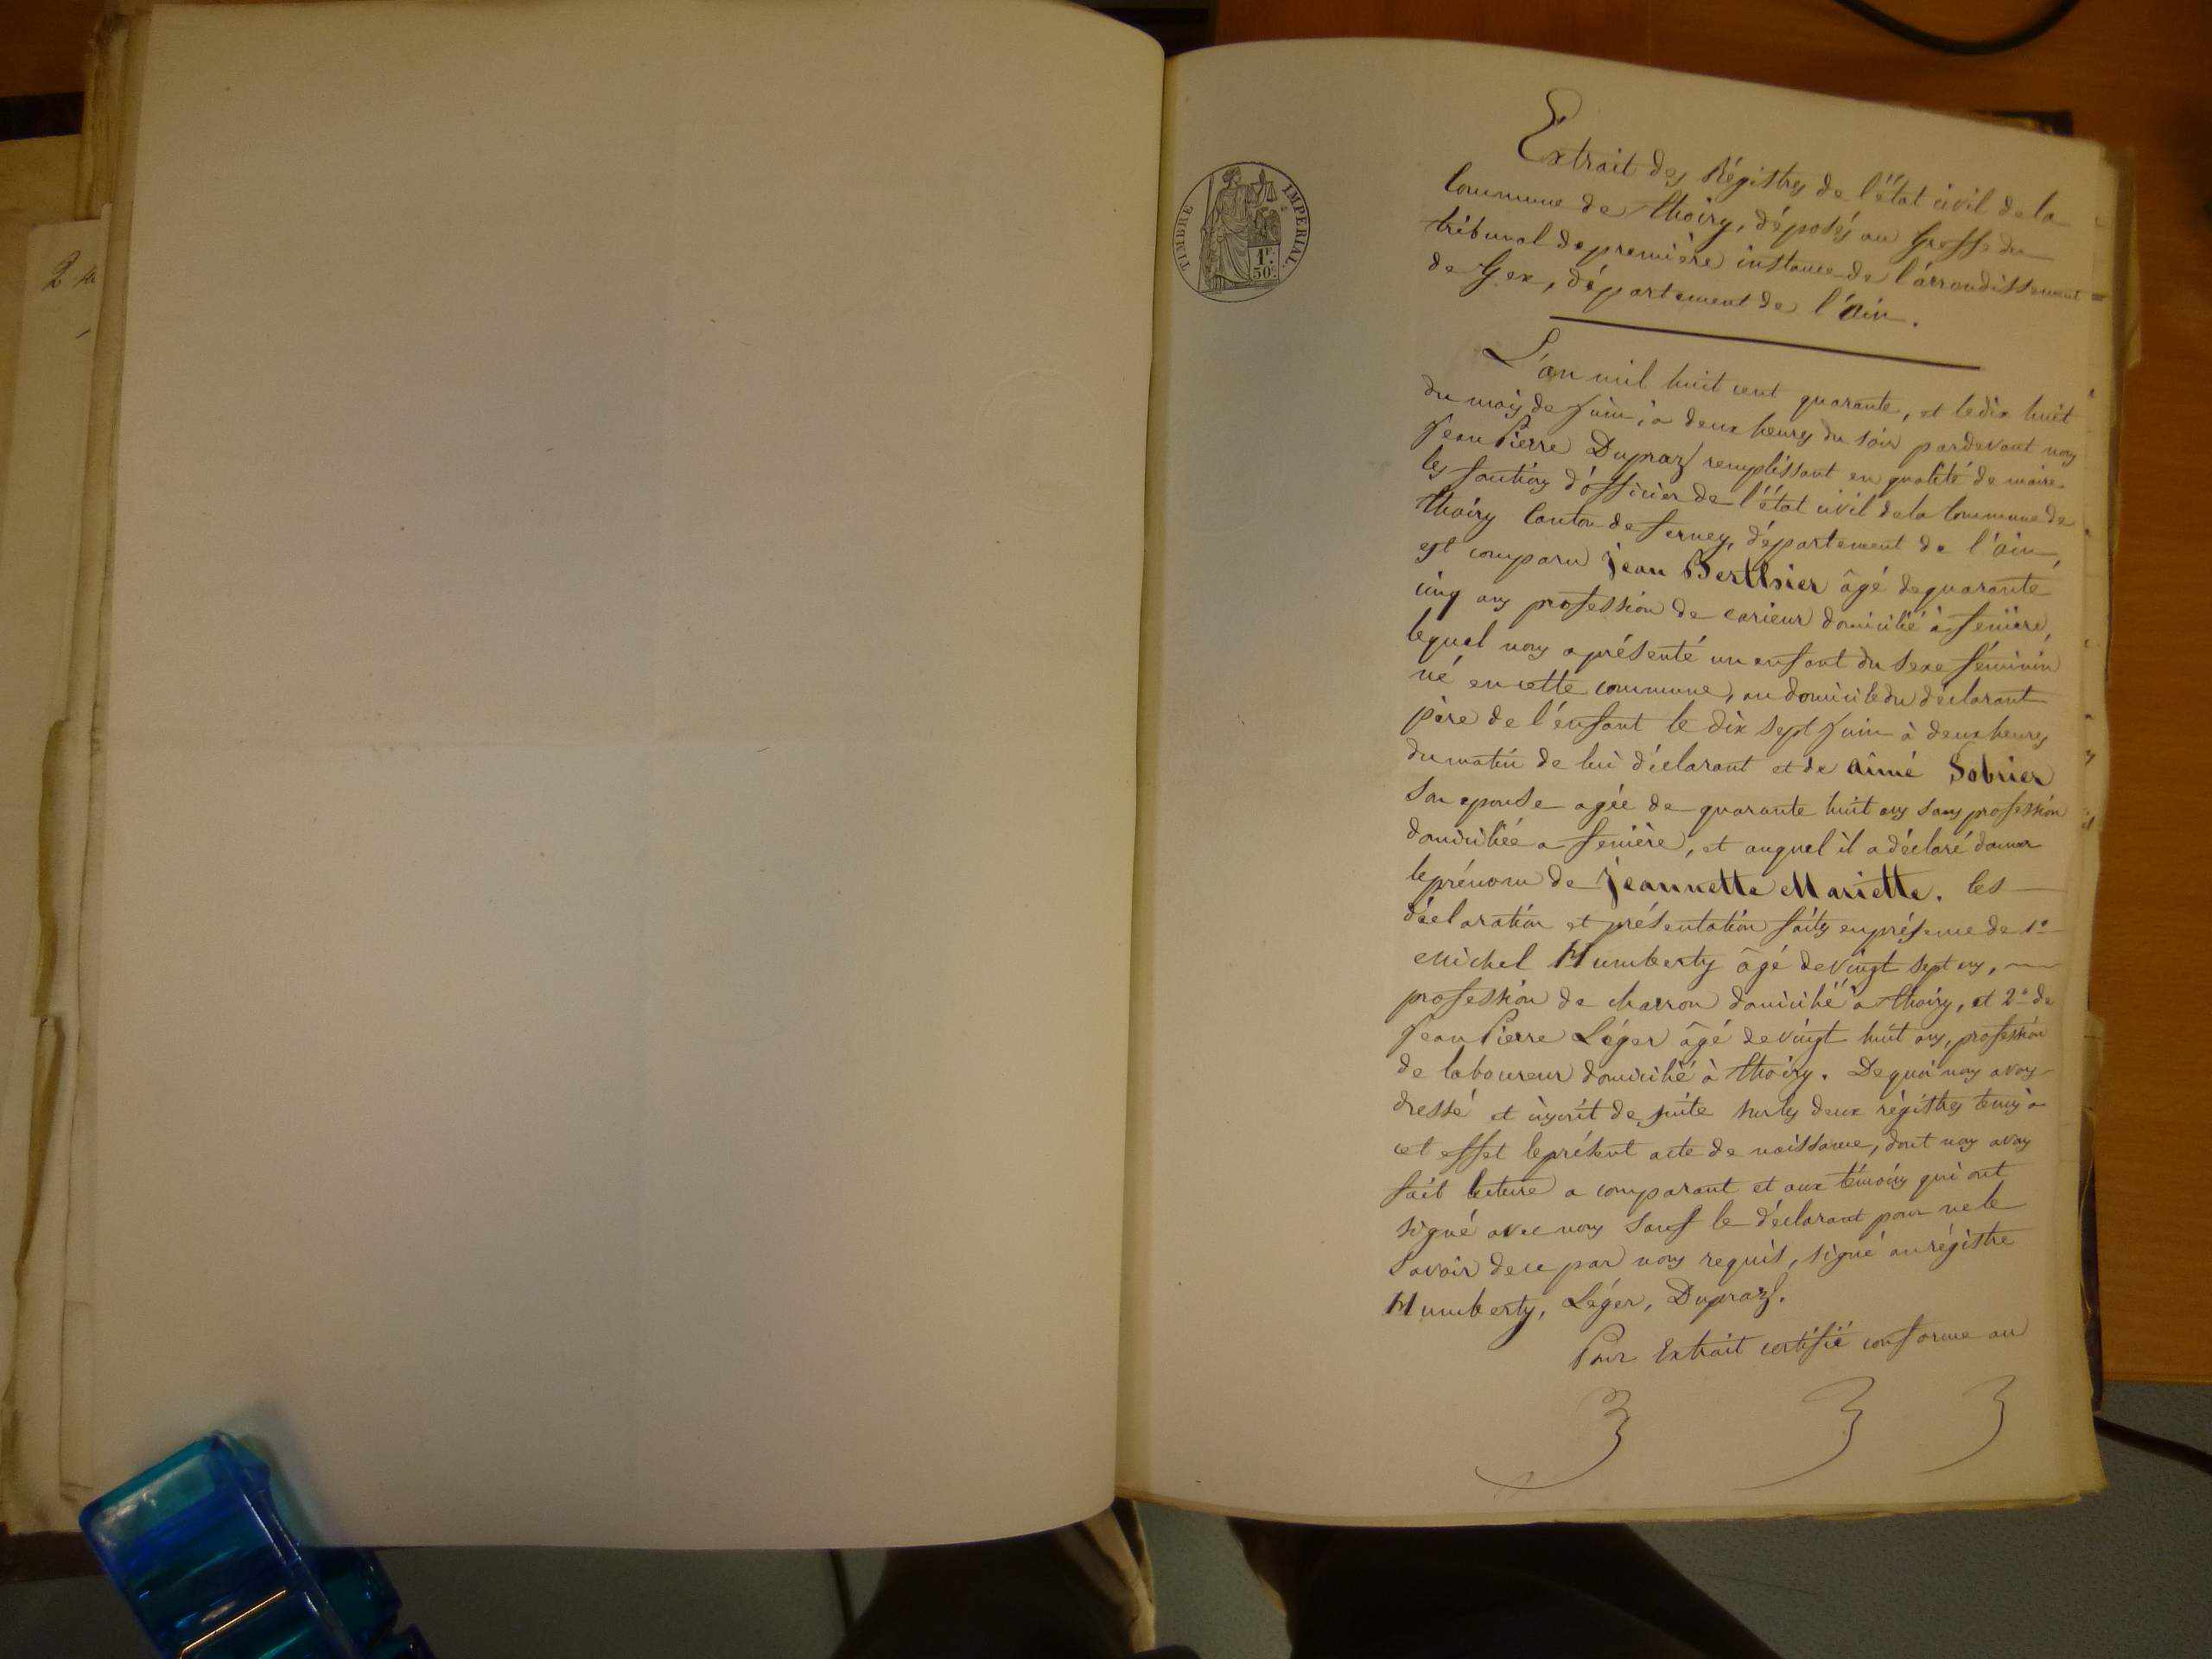 TIMBRE IMPERIAL.
1F.
50c.
Extrait des Régistres de l'état civil de la
Commune de thoiry, déposés au Greffe du
tribunal de première instance de l'arrondissement
de Gex, département de l'ain.
L'an mil huit cent quarante, et le dix huit
du mois de Juin, à deux heures du soir pardevant nous
Jean Pierre Dupraz remplissant en qualité de maire
les fontions d'officier de l'état civil de la Commune de
thoiry Canton de ferney, département de l'ain,
est comparu jean Berthier âgé de quarante
cinq ans profession de carieur domicilié à fenière,
lequel nous a présenté un enfant du sexe féminin
né en cette commune, au domicile du déclarant
père de l'enfant le dix sept Juin à deux heures
du matin de lui déclarant et de aimé Sobrier
son epouse agée de quarante huit ans sans profession
domiciliée a fenière, et auquel il a déclaré donner
le prénom de jeannette Mariette. les
déclaration et présentation faites en présence de 1°
Michel Humberty âgé de vingt sept ans,
profession de charron domicilié a thoiry, et 2° de
Jean Pierre Léger âgé de vingt huit ans, profession
de laboureur domicilié à thoiry. De quoi nous avons
dressé et inscrit de suite sur les deux régistres tenus a
cet effet le présent acte de naissance, dont nous avons
fait lecture a comparant et aux témoins qui ont
signé avec nous sauf le déclarant pour ne le
savoir de ce par nous requis, signé au régistre
Humberty, Léger, Dupraz.
Pour Extrait certifié conforme au
3 3 3